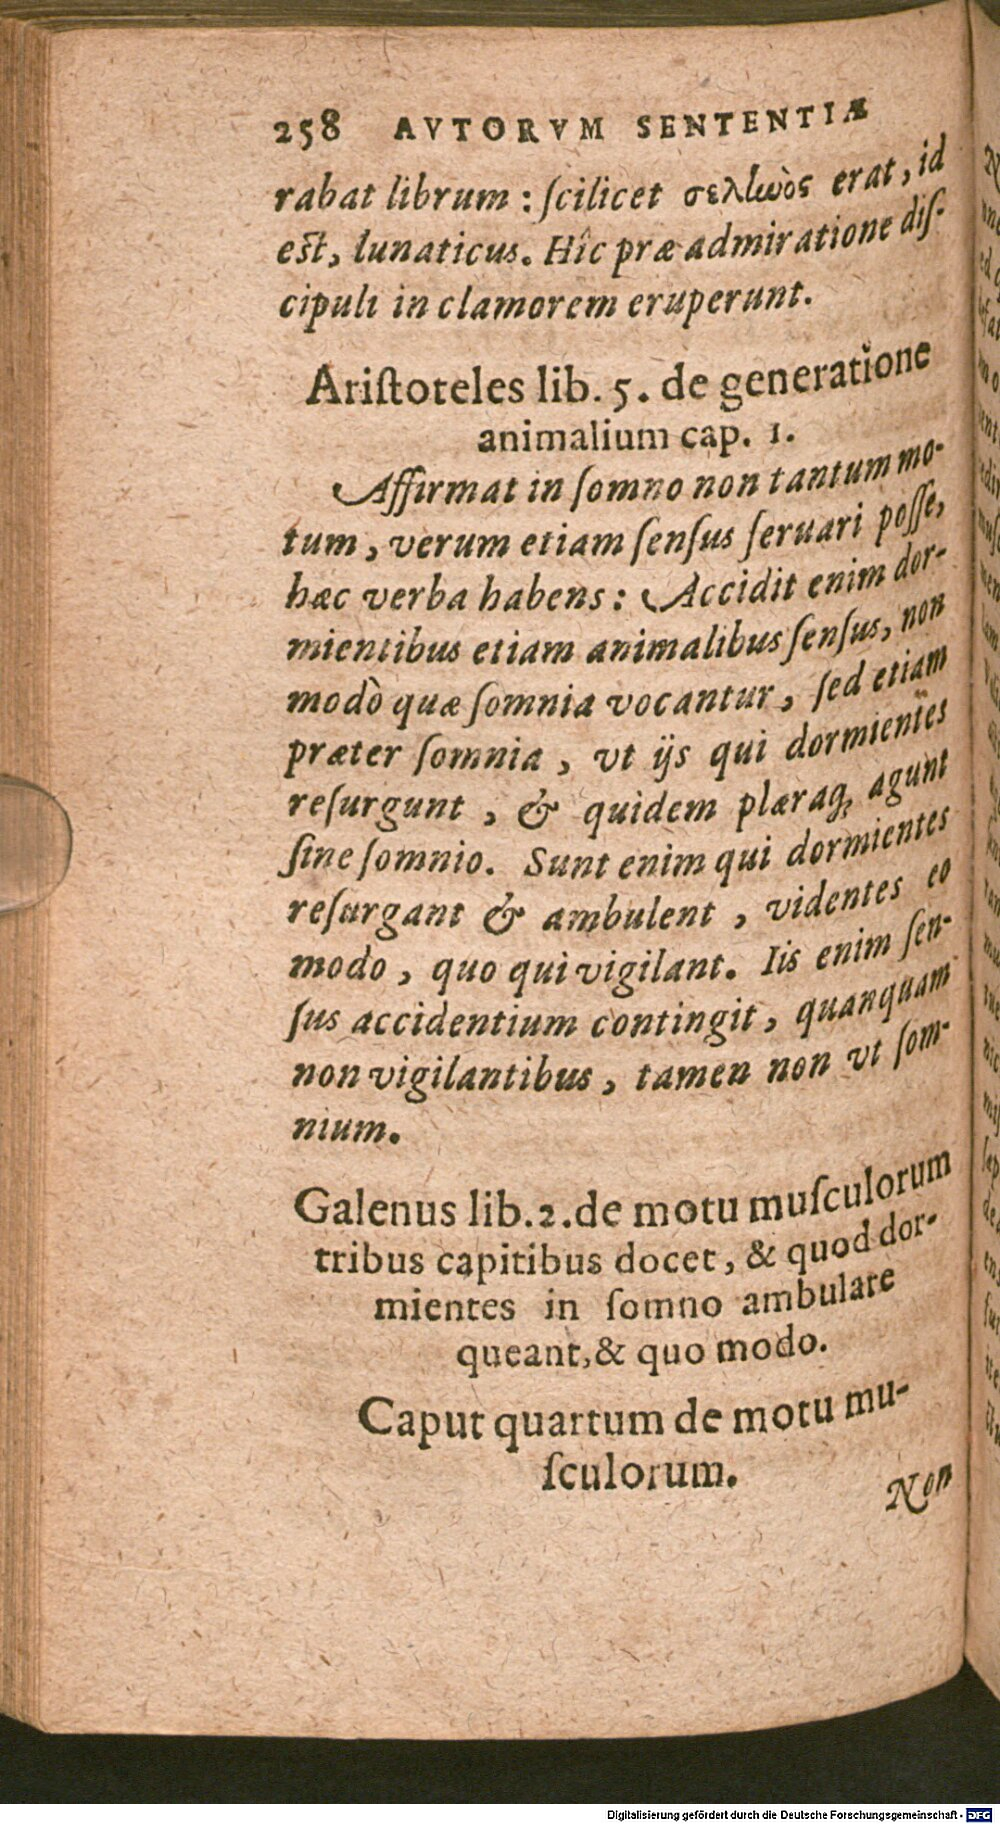 258 AVTORVM SENTENTIÆ
rabat librum : ſcilicet σεληνὸς erat, id
est, lunaticus. Hîc præ admiratione diſ-
cipuli in clamorem eruperunt.
Ariſtoteles lib. 5. de generatione
animalium cap. 1.
Affirmat in ſomno non tantum mo-
tum, verum etiam ſenſus ſeruari poſſe,
hæc verba habens: Accidit enim dor-
mientibus etiam animalibus ſenſus, non
modò quæ ſomnia vocantur, ſed etiam
præter ſomnia, vt ijs qui dormientes
reſurgunt, & quidem plæraq; agunt
ſine ſomnio. Sunt enim qui dormientes
reſurgant & ambulent, videntes eo
modo, quo qui vigilant. Iis enim ſen-
ſus accidentium contingit, quanquam
non vigilantibus, tamen non vt ſom-
nium.
Galenus lib. 2. de motu muſculorum
tribus capitibus docet, & quod dor-
mientes in ſomno ambulare
queant, & quo modo.
Caput quartum de motu mu-
ſculorum.
Non
Digitalisierung gefördert durch die Deutsche Forschungsgemeinschaft - DFG